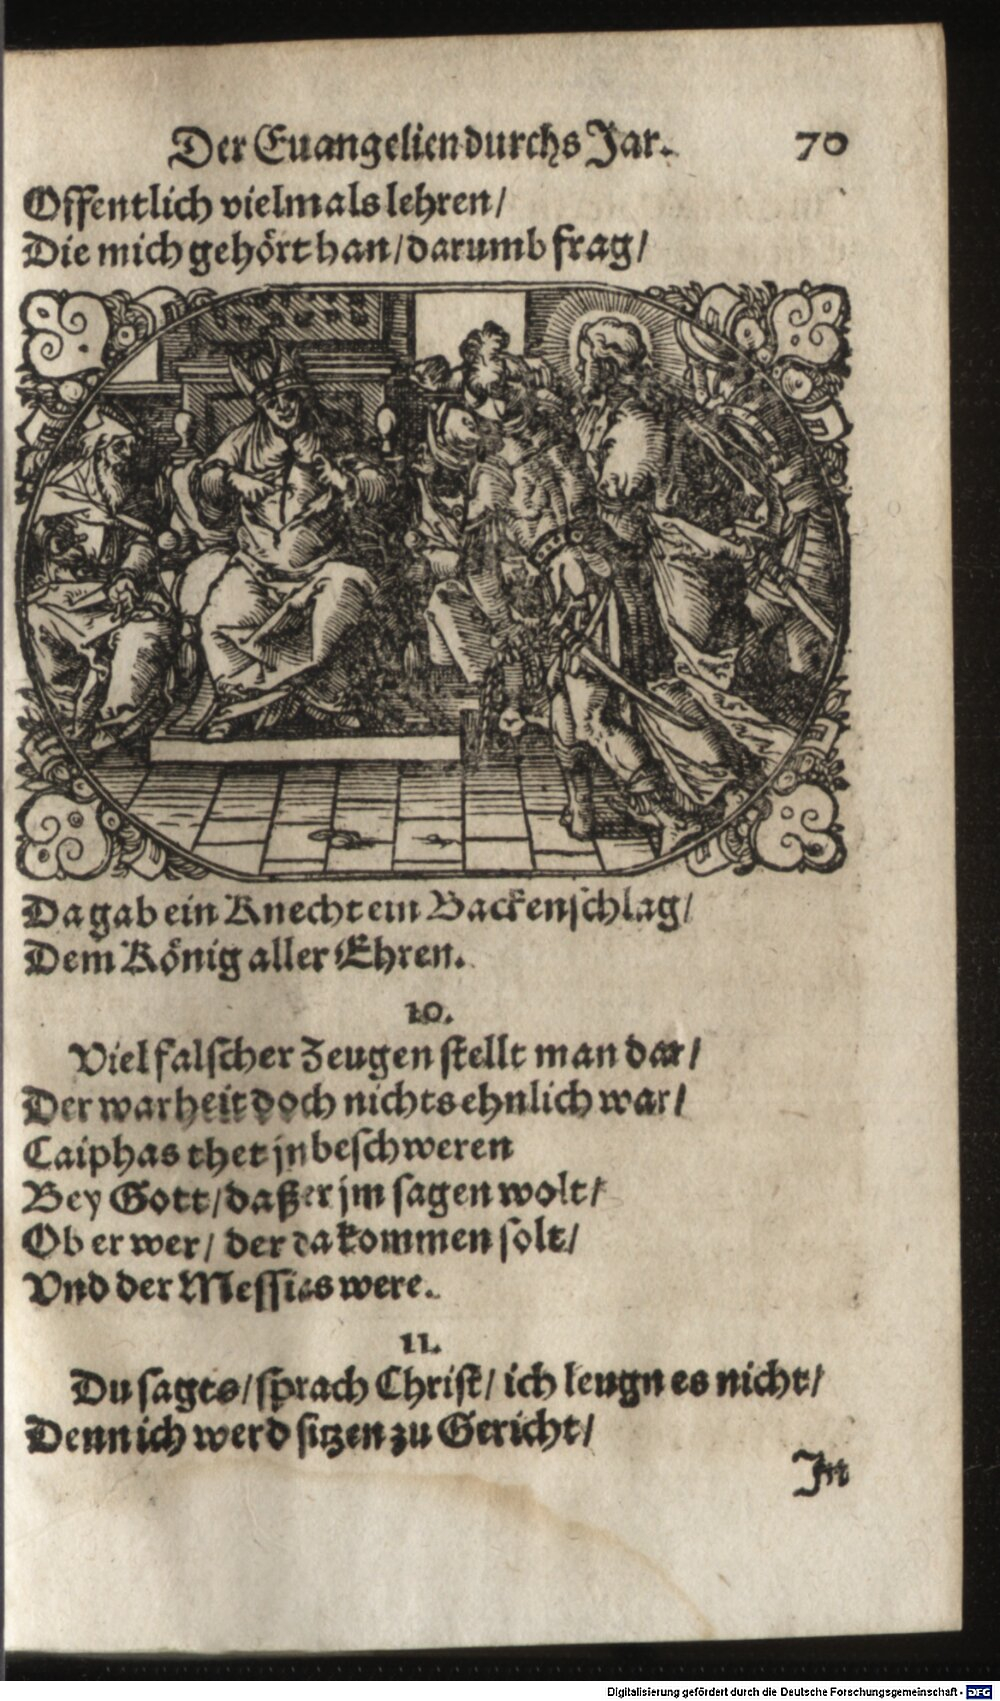 Der Euangelien durchs Jar. 70
Offentlich vielmals lehren/
Die mich gehört han/ darumb frag/
Da gab ein Knecht ein Backenschlag/
Dem König aller Ehren.
10.
Viel falscher Zeugen stellt man dar/
Der warheit doch nichts ehnlich war/
Caiphas thet jn beschweren
Bey Gott/ daß er jm sagen wolt/
Ob er wer/ der da kommen solt/
Vnd der Messias were.
11.
Du sagts/ sprach Christ/ ich leugn es nicht/
Denn ich werd sitzen zu Gericht/
In
Digitalisierung gefördert durch die Deutsche Forschungsgemeinschaft - DFG